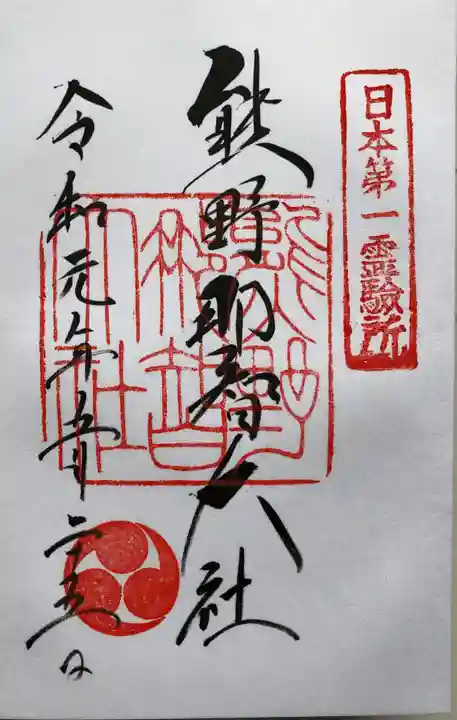 日本第一霊験所
熊野那智大社
熊野那智大社
令和元年五月二十五日